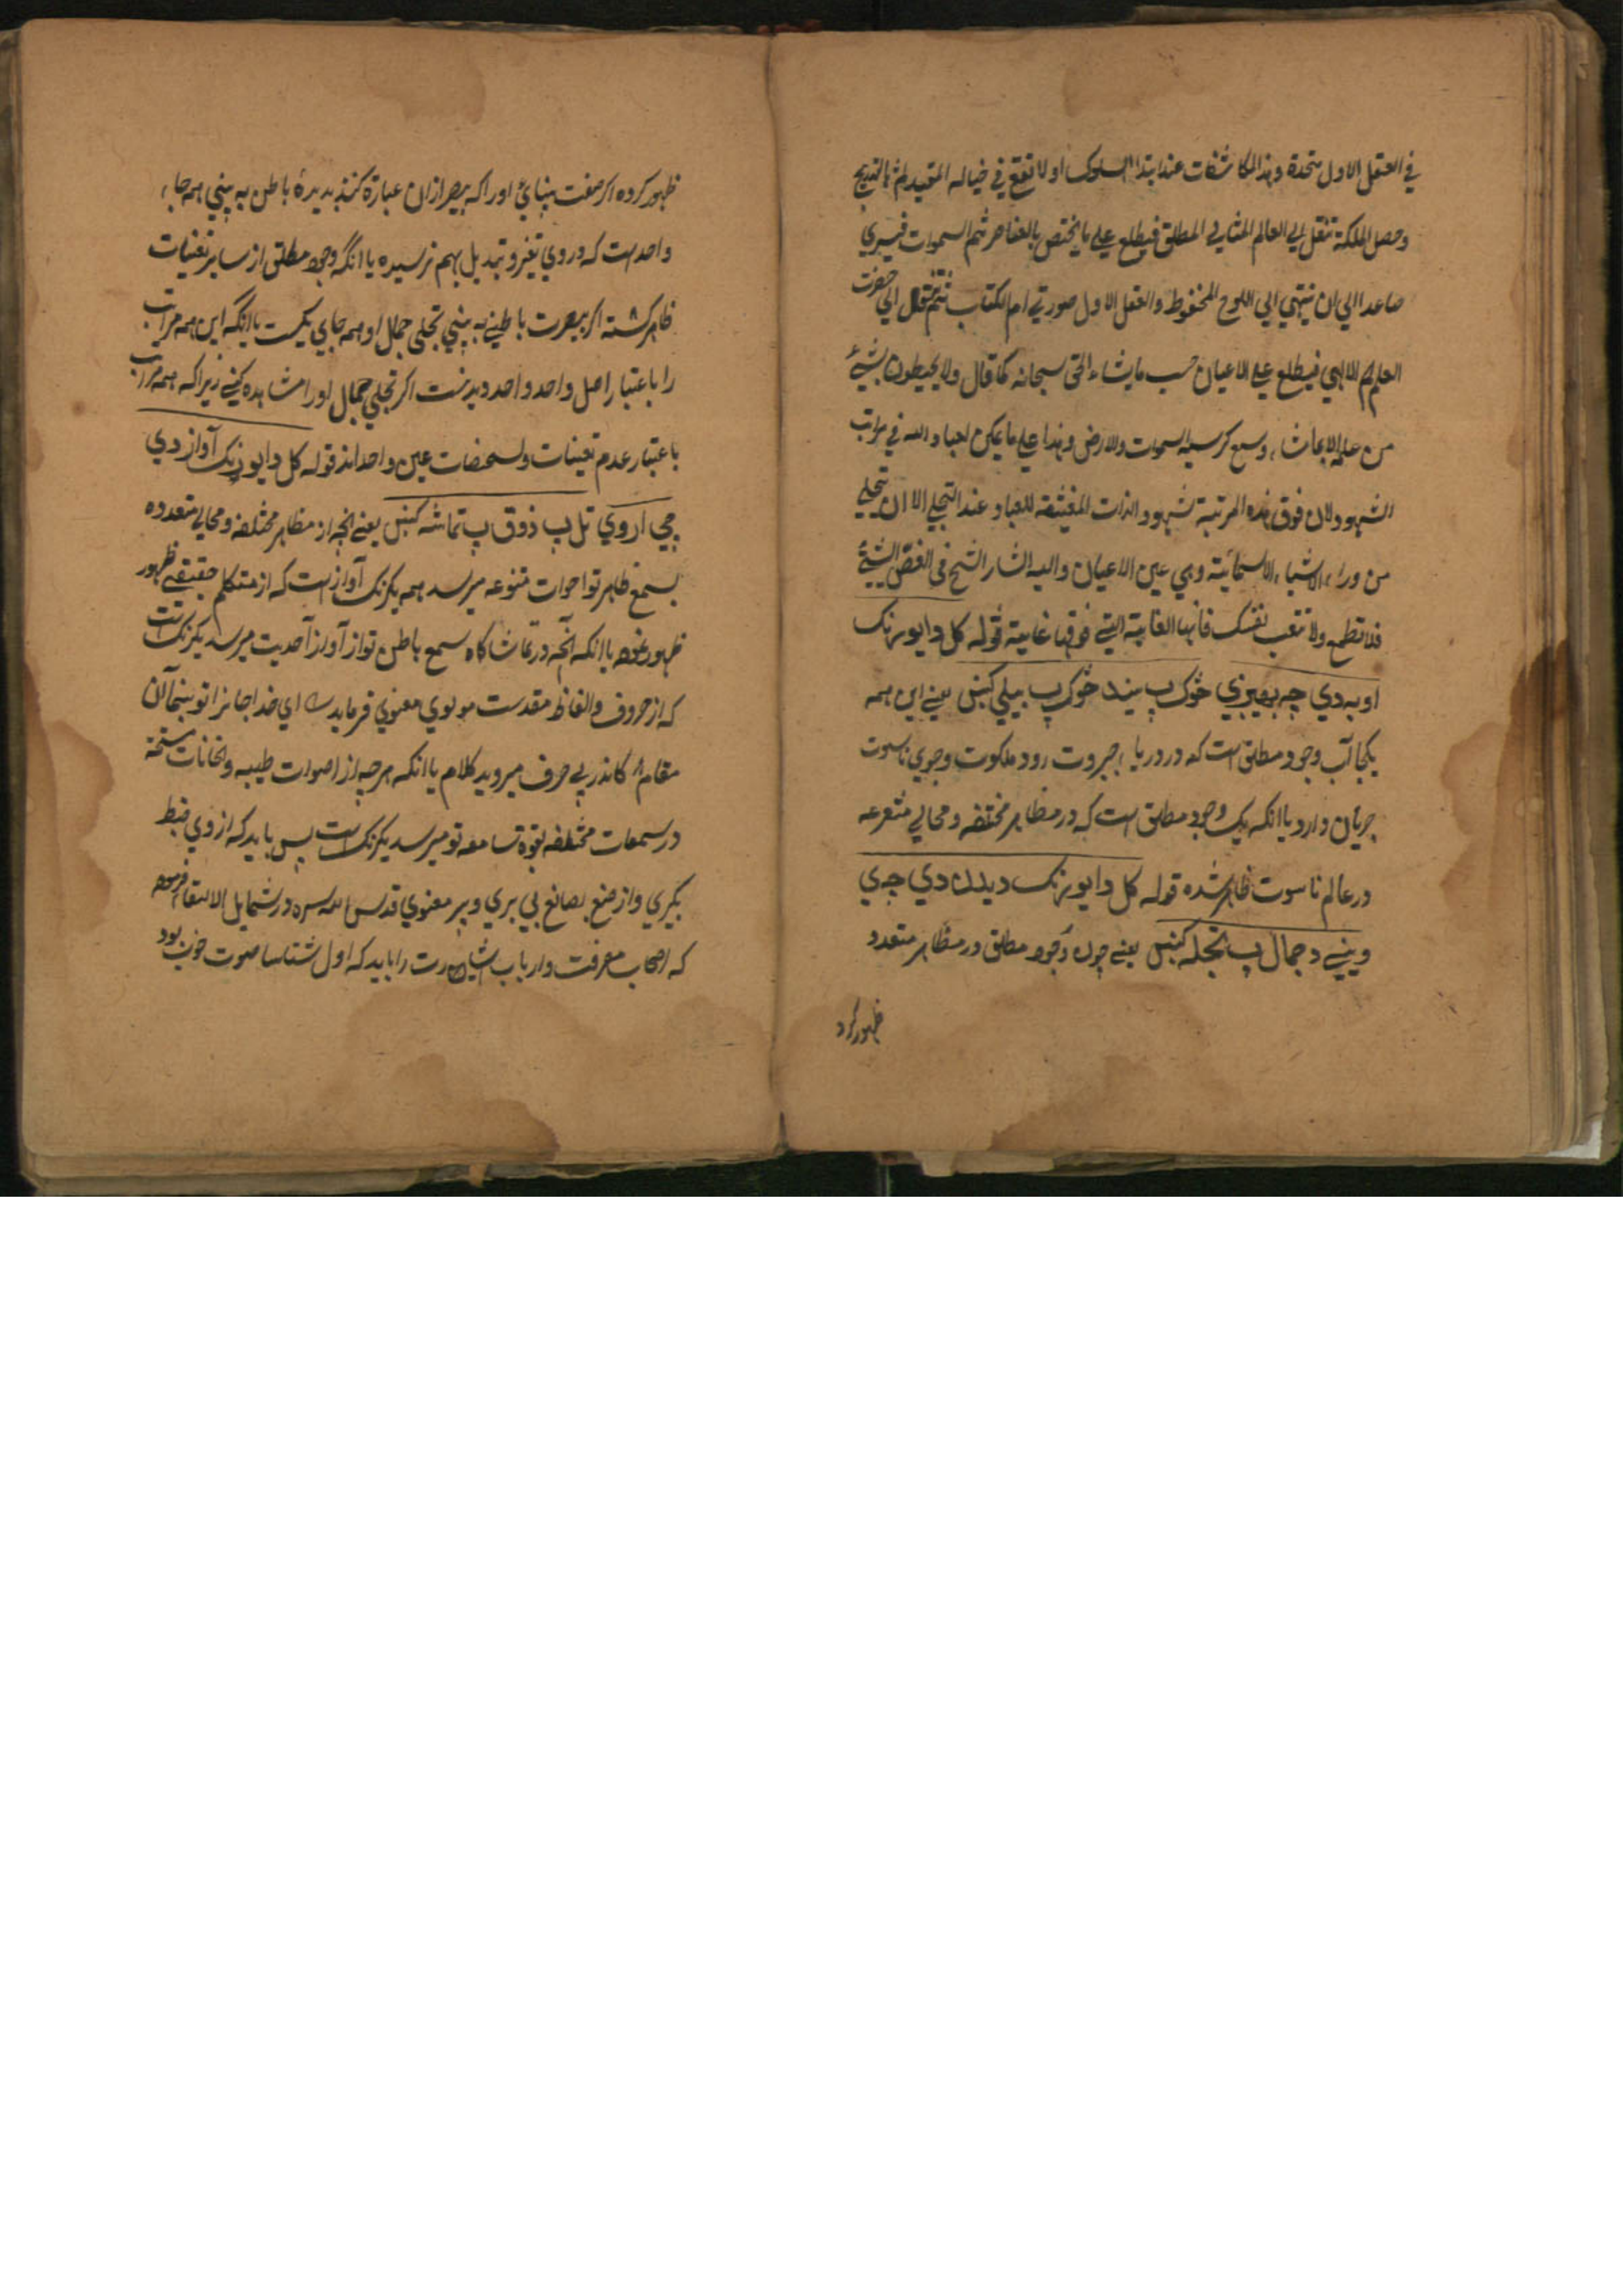 في العقل الاول متحدة وهذا المكاشفات عند ابتدا السلوک اولا تقع في خياله المقيد ثم بالتدريج
وحصل الملكة تنقل الي العالم المثالي المطلق فيطلع علي ما يختص بالعناصر ثم السموات فيسري
صاعدا الي ان ينتهي الي اللوح المحفوظ والعقل الاول صورتي ام الكتاب ثم ينتقل الي حضرت
العلم الالهي فيطلع علي الاعيان حسب ما يشاء الحق سبحانه كما قال ولا يحيطون بشيءٍ
من علمه الا بما شاء وسع كرسيه السموات والارض وهذا علي ما يمكن لعباد الله في مراتب
الشهود لان فوق هذه المرتبة شهود الذات المفنية للعباد عند التجلي الا ان تتجلي
من وراء الاشياء الاسمائية وهي عين الاعيان واليه اشار الشيخ في الفص الشيثي
فلا تطمع ولا تتعب نفسک فانها الغاية التي فوقها غاية قوله كل دا يو رنک
اوبه دي چه بهيږي څوک پ سيند څوک پ بيلي کښي يعني اين همه
يکجا آب وجود مطلق است که در دريا جبروت رود ملکوت وجوي ناسوت
جريان دارد يا انکه يک وجود مطلق است که در مظاهر مختلفه ومجالي متفرعه
در عالم ناسوت ظاهر شده قوله کل دا يو رنک ديدن دي چي
ويني د جمال پ تجله کښي يعني چون وجود مطلق در مظاهر متعدد
ظهور کرد
ظهور کرده اکر صفت بينائي او را که بصر ازان عبارة کنند بديدهٔ باطن به بيني همه جا
واحد است که در وي تغير وتبديل بهم نرسيده يا انکه وجود مطلق از ساير تعينات
ظاهر کشته اکر ببصرت باطني به بيني تجلي جمال او همه جاي يکيست يا انکه اين همه مراتب
را با عتبار اصل واحد و احد ديدنست اکر تجلي جمال او را مشاهده کني زيرا که همه مراتب
با عتبار عدم تعينات وتشخصات عين واحد اند قوله کل دا يو رنک آواز دي
چي اروي تل پ ذوق پ تماشه کښي يعني انچه از مظاهر مختلفه ومجالي متعدده
بسمع ظاهر تو اصوات متنوعه ميرسد همه يکرنک آواز است که از متکلم حقيقي ظهور
ظهور نموده يا انکه آنچه در تماشاکاه سمع باطن تو از آواز احديت ميرسد يکرنک است
که از حروف والفاظ مقدست مولوي معنوي فرمايد اي خدا جانرا تو بنما آن
مقام کاندر پي حرف ميرويد کلام يا انکه هرچه از اصوات طيبه والحانات
در سمعات مختلفه بقوة سامعه تو ميرسد يکرنک است پس بايد که از وي ضبط
بکيري واز صنع بصانع پي بري وپير معنوي قدس الله سره در شمايل الاتقا فرموده
که اصحاب معرفت وارباب را بايد که اول شناسا صوت خوب بود